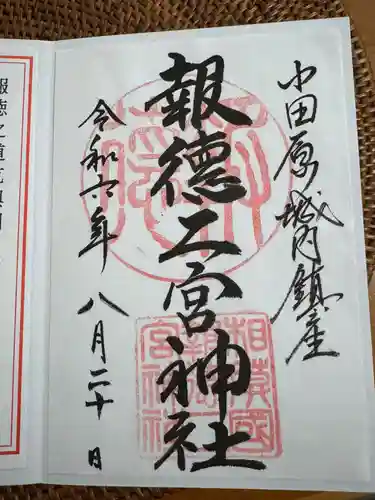 小田原城内鎮座
報徳二宮神社
令和六年八月二十日
相模國
報徳二
宮神社